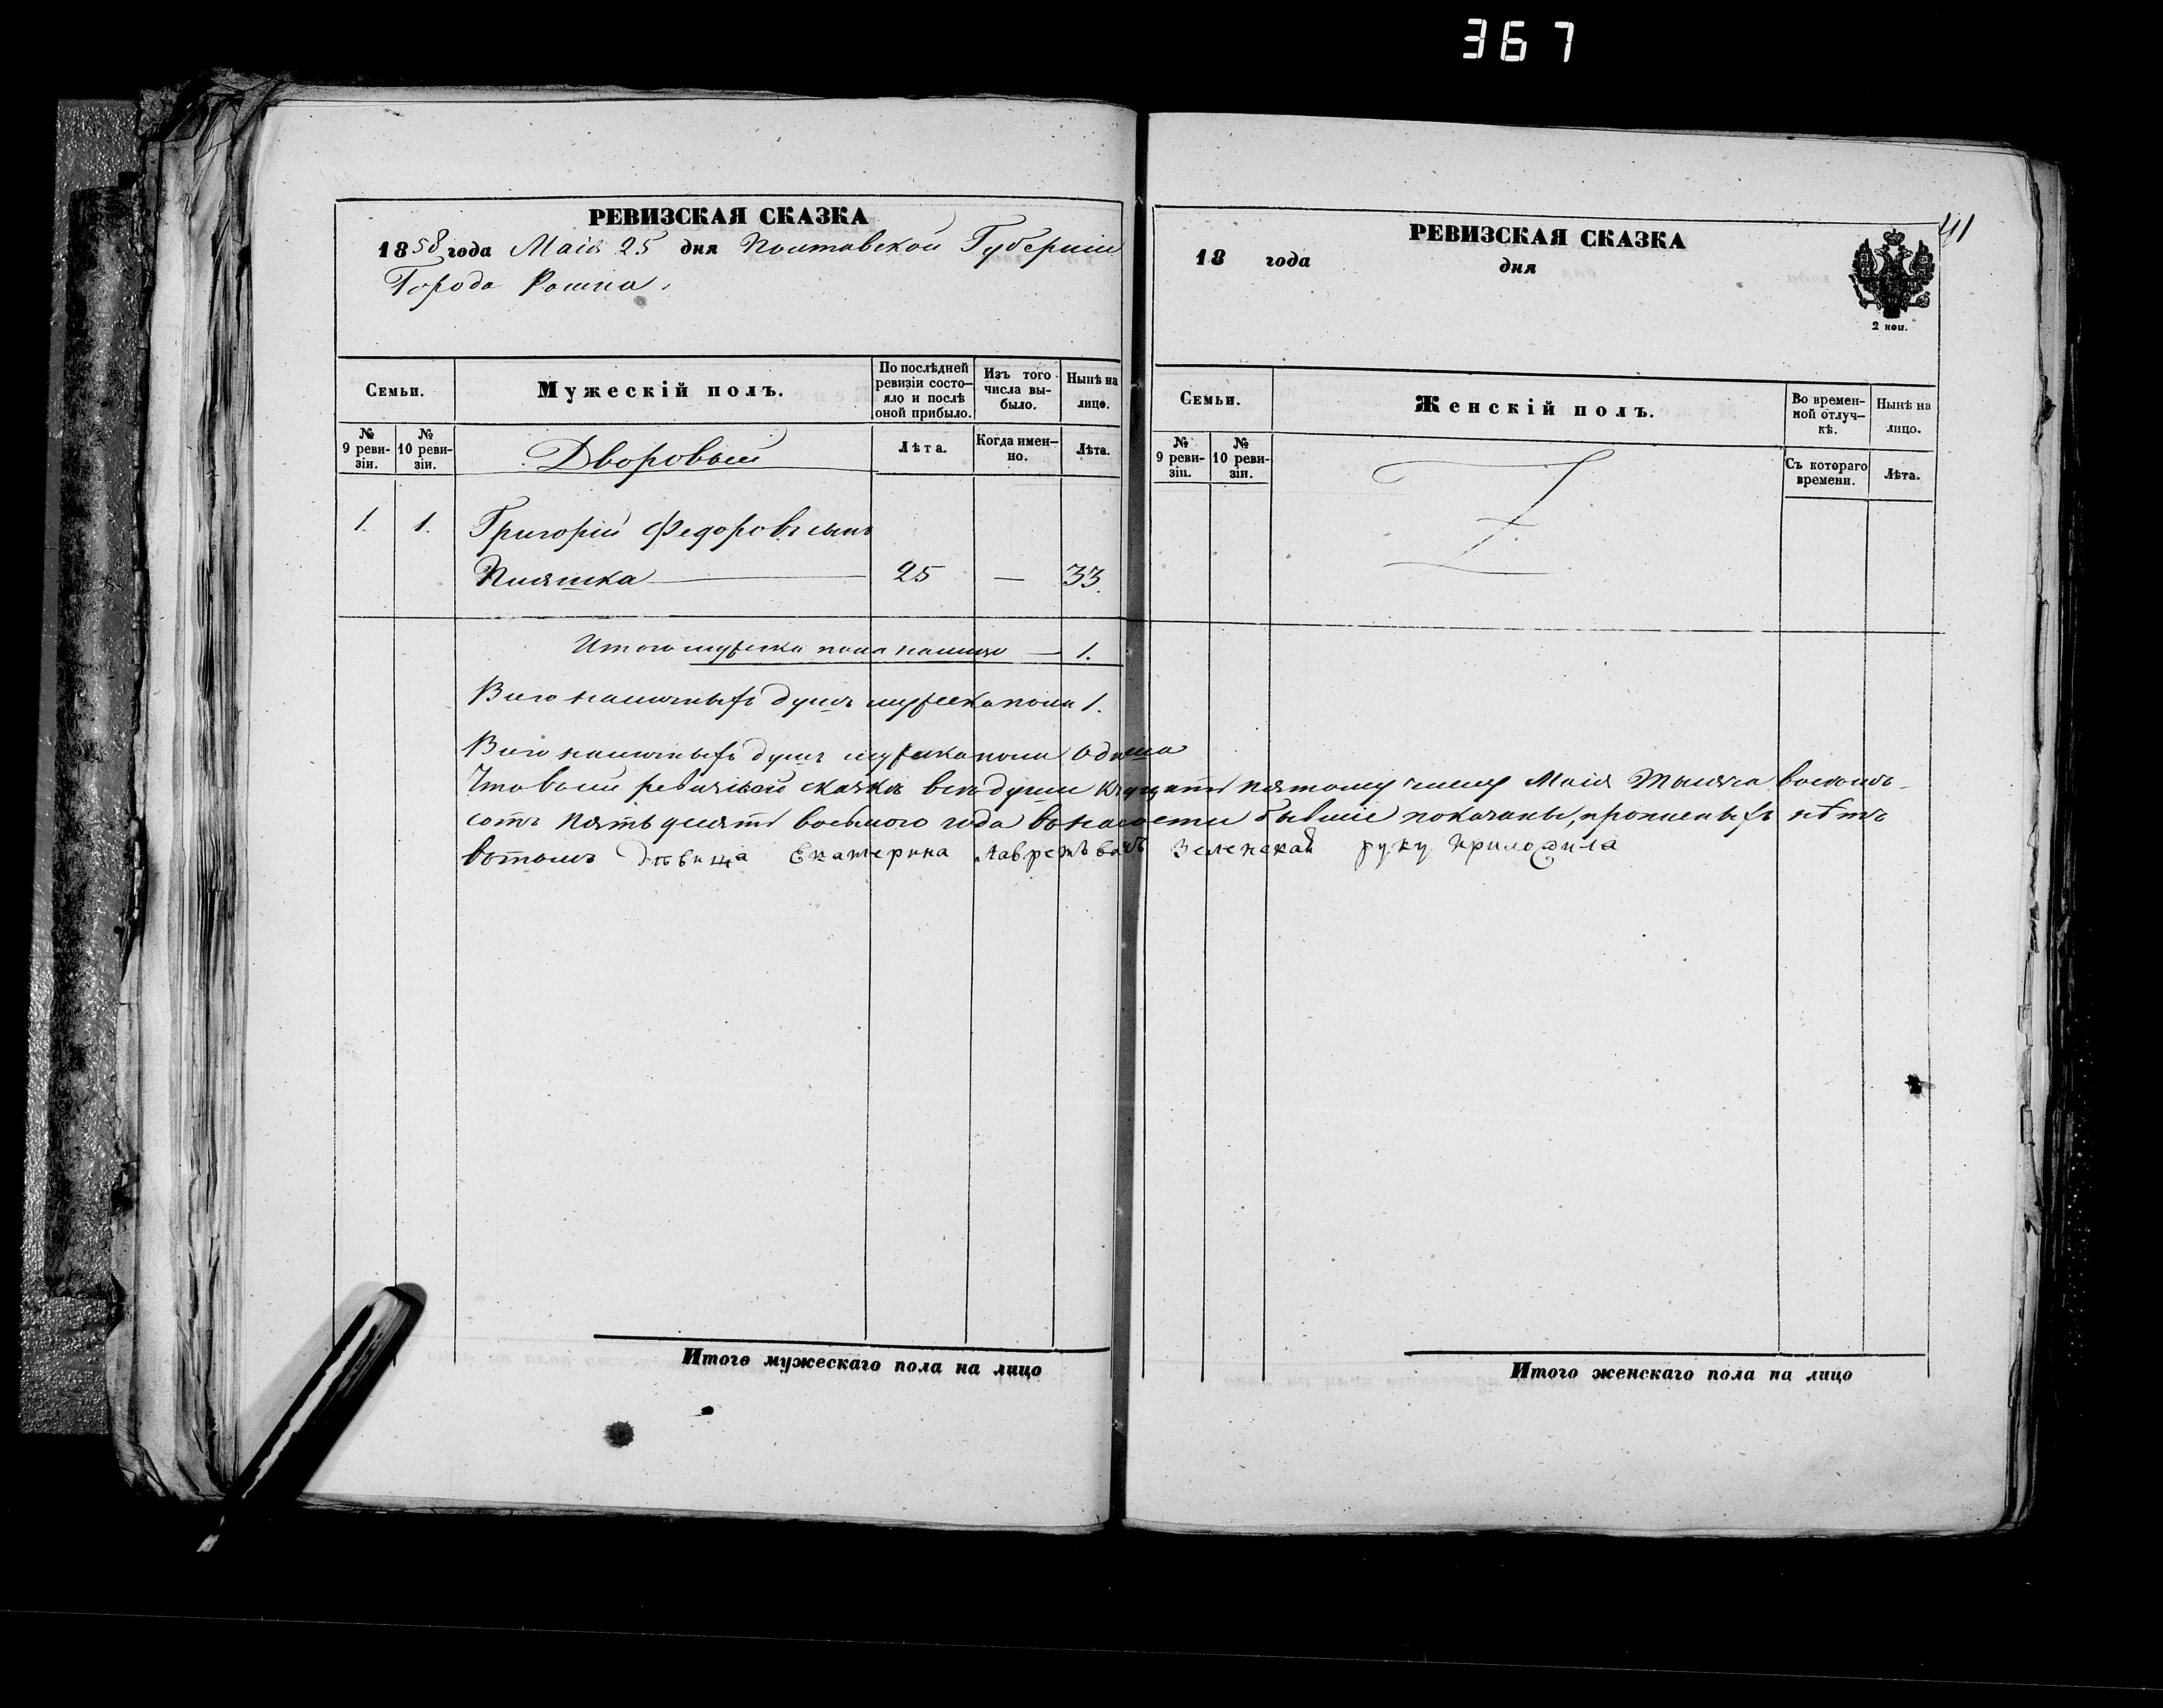 367
РЕВИЗСКАЯ СКАЗКА
1858 года Маія 25 дня Полтавской Губерніи
Города Ромна,
Семьи.
Мужескій полъ.
По послѣдней ревизіи состо-
яло и послѣ оной прибыло.
Изъ того числа вы-
было.
Нынѣ на лицо.
№ 9 реви-
зіи.
№ 10 реви-
зіи.
Дворовый
Лѣта.
Когда имен-
но.
Лѣта.
1. 1. Григорій Федоровъ сынъ
25 — 33.
Итого мужеска пола налицо — 1.
Всего наличныхъ душъ мужеска пола 1.
Всего наличныхъ душъ мужеска пола одна
Что в сей ревизской сказкѣ всѣ души къ пятому числу Маія Тысяча восемь-
сотъ пятьдесятъ восьмого года бывшіе показаны, прописныхъ нѣтъ
вотомъ Дѣвица Екатерина Зеленская руку приложила
Итого мужескаго пола на лицо
41
РЕВИЗСКАЯ СКАЗКА
18 года дня
2 коп.
Семьи.
Женскій полъ.
Во времен-
ной отлуч-
кѣ.
Нынѣ на лицо.
№ 9 реви-
зіи.
№ 10 реви-
зіи.
Съ котораго времени.
Лѣта.
Итого женскаго пола на лицо